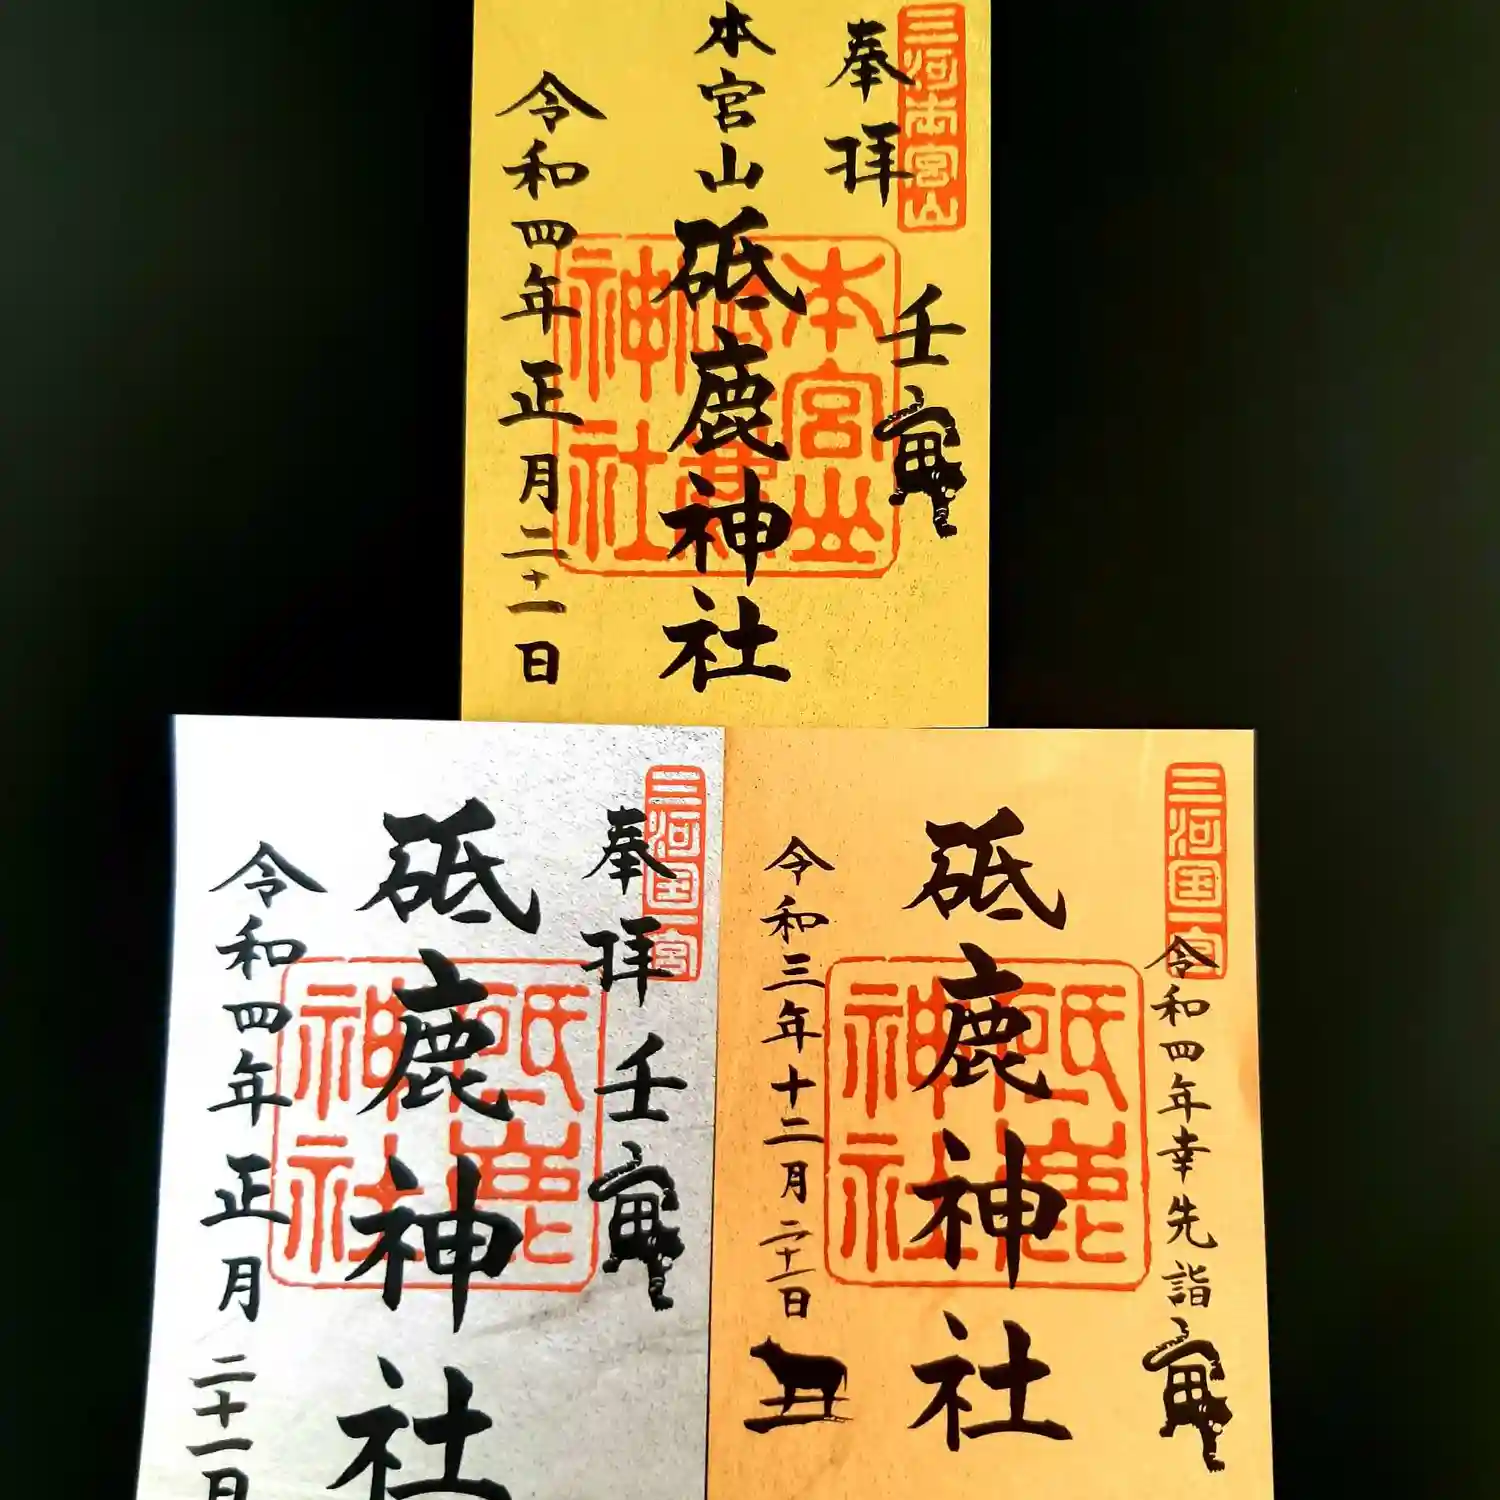 三河本宮山
奉拝
壬寅
本宮山
砥鹿神社
本宮山
神社
令和四年正月二十一日
三河国一宮
奉拝
壬寅
砥鹿神社
砥鹿
神社
令和四年正月二十一日
三河国一宮
令和四年幸先詣
寅
砥鹿神社
砥鹿
神社
令和三年十二月二十二日
丑